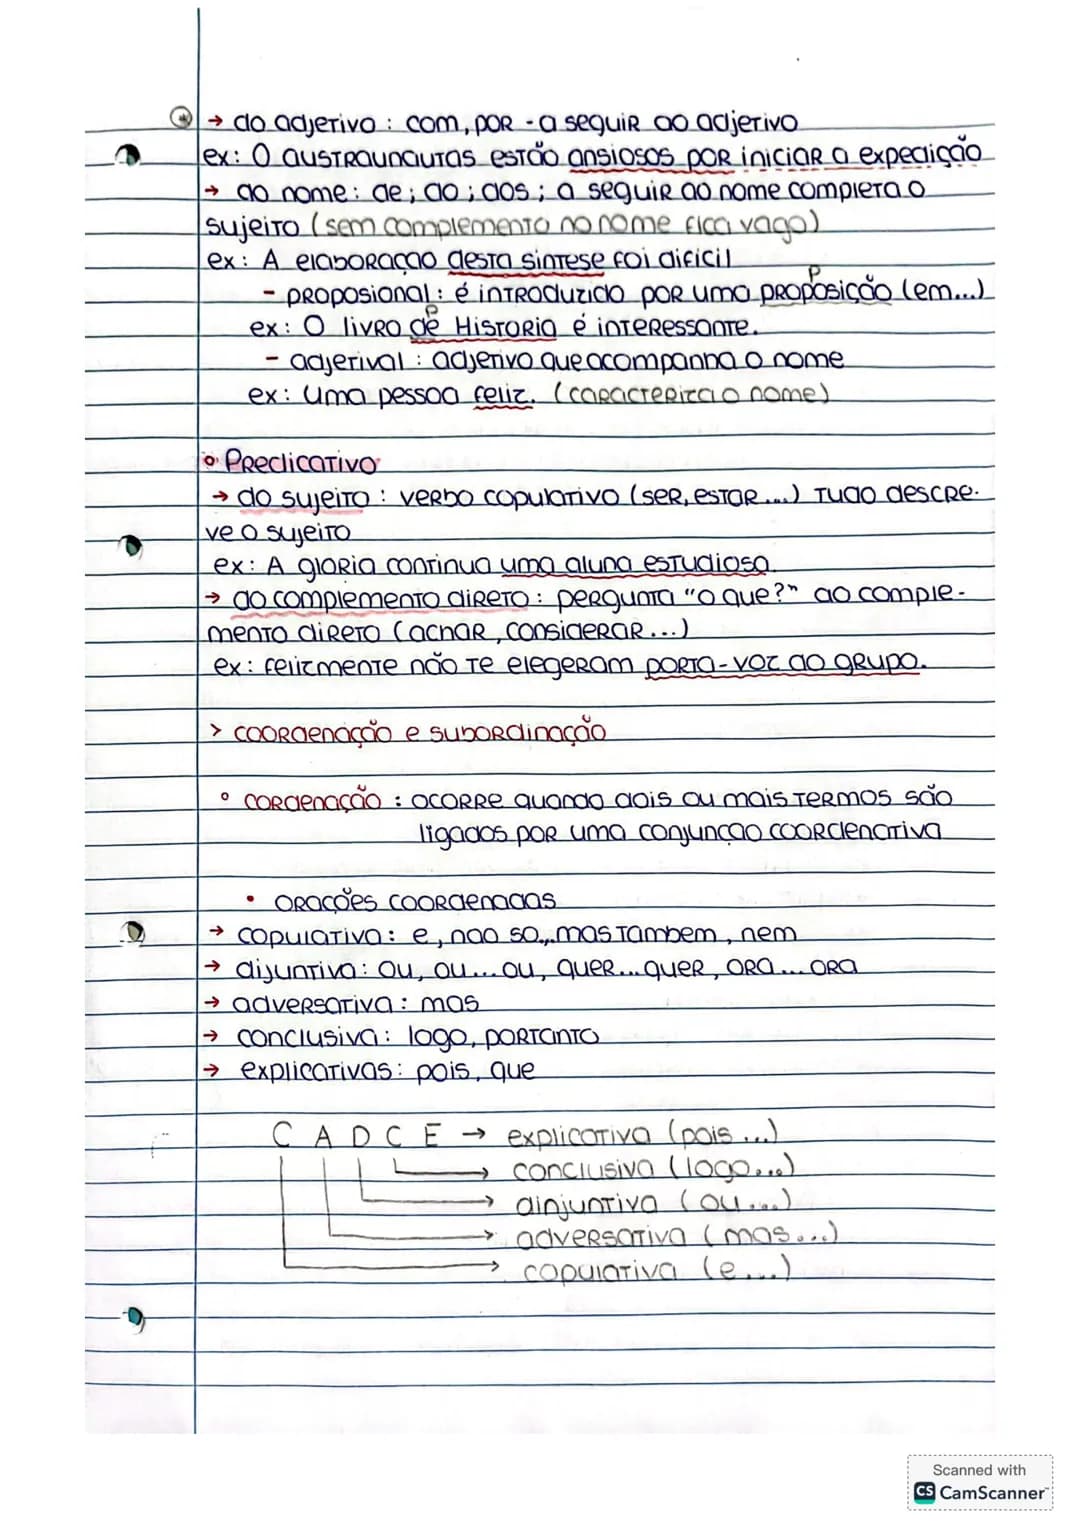 → do adjetivo : com, por - a seguir ao adjetivo
ex: O austraunautas estão ansiosos por iniciar a expedição
→ do nome: de; do; dos; a seguir ao nome completa o
sujeito (sem complemento no nome fica vago)
ex: A elaboração desta sintese foi dificil
- proposional : é introduzido por uma proposição (em...)
p
ex: O livro de Historia é interessante.
p
- adjetival : adjetivo que acompanha o nome
ex: Uma pessoa feliz. (caracteriza o nome)
° Predicativo
→ do sujeito : verbo copulativo (ser, estar...) Tudo descre-
ve o sujeito
ex: A gloria continua uma aluna estudiosa.
→ do complemento direto : pergunta "o que?" ao comple-
mento direto (achar, considerar...)
ex: felizmente não te elegeram porta-voz do grupo.
> coordenação e subordinação
° cordenação : ocorre quando dois ou mais termos são
ligados por uma conjunção coordenativa
• orações coordenadas
→ copulativa: e, nao so... mas tambem, nem
→ dijuntiva: ou, ou... ou, quer... quer, ora... ora
→ adversativa: mas
→ conclusiva: logo, portanto
→ explicativas: pois, que
C A D C E → explicativa (pois...)
→ conclusiva (logo...)
→ dinjuntiva (ou...)
→ adversativa (mas...)
→ copulativa (e...)
Scanned with
CS CamScanner